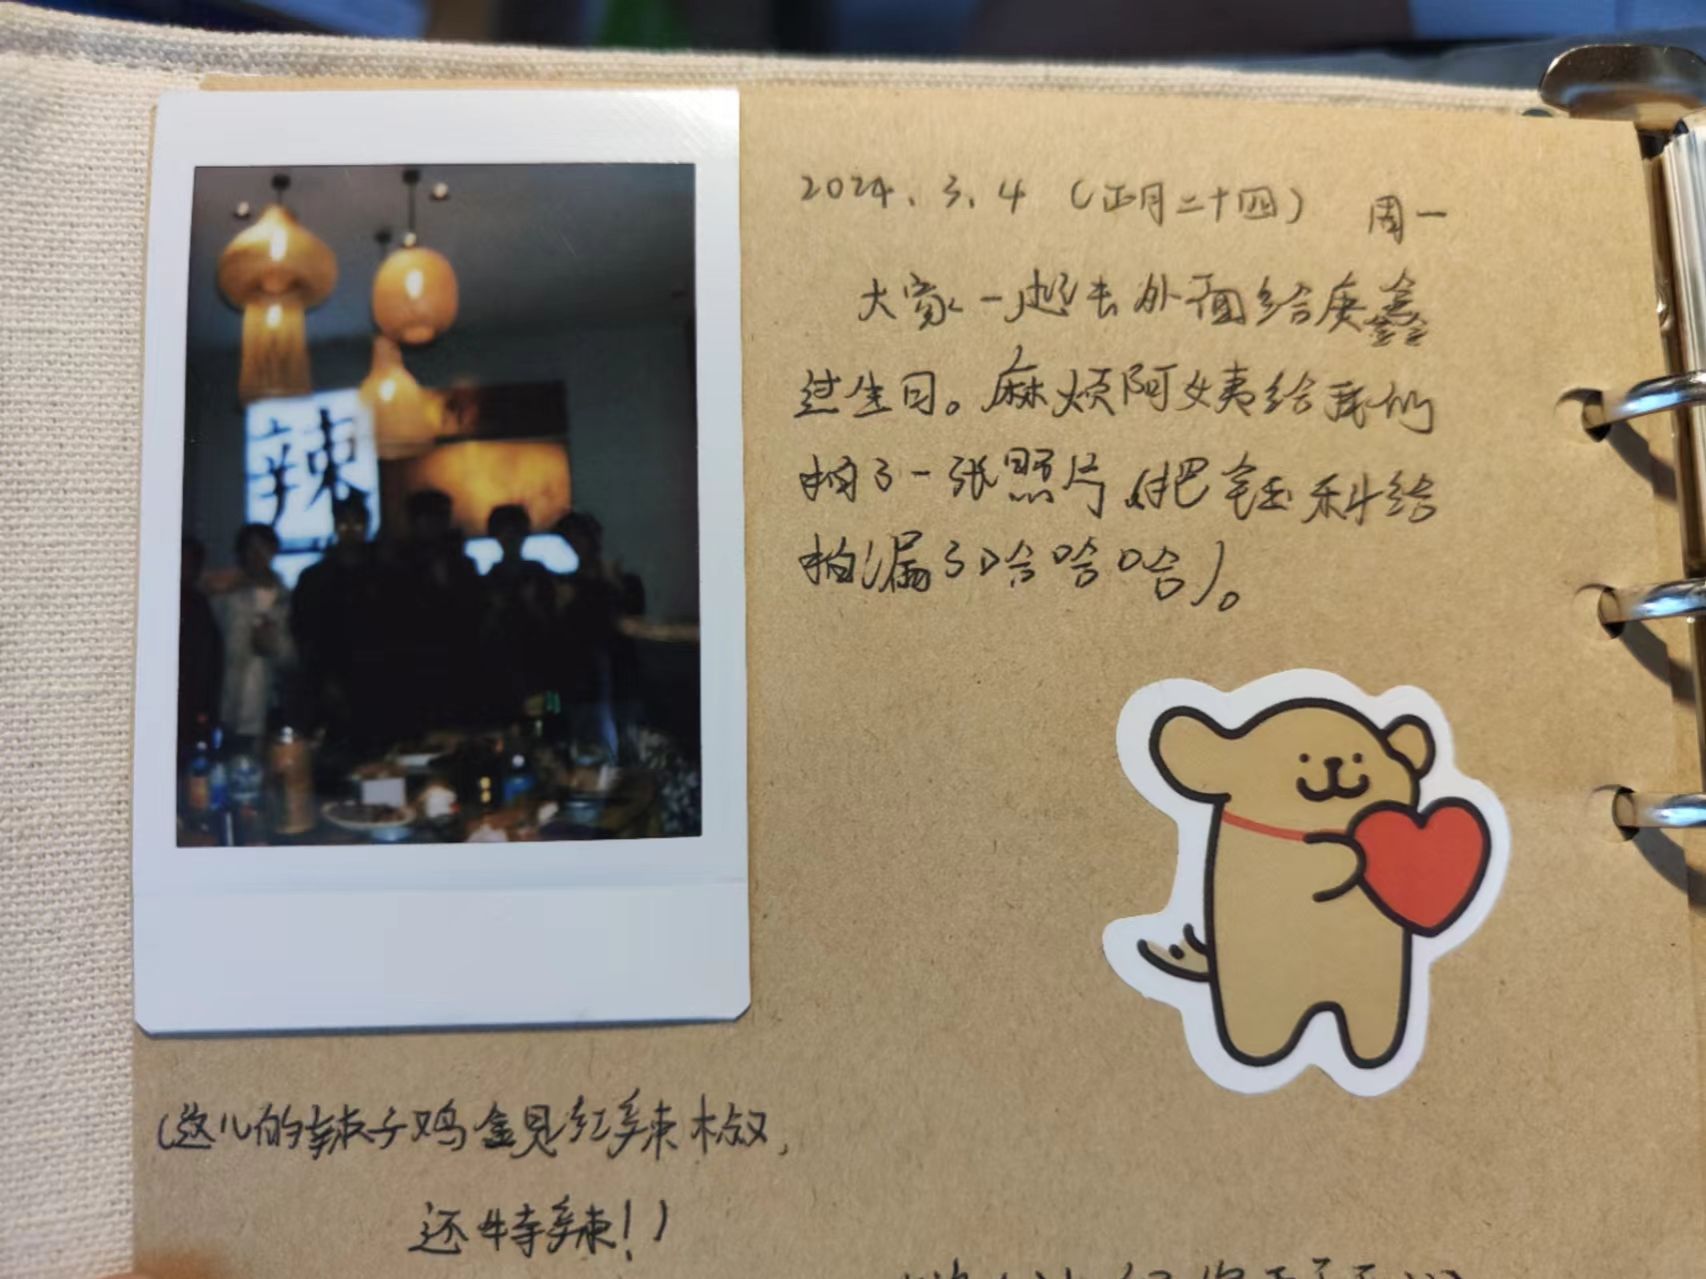 辣
2024.3.4（正月二十四） 周一
大家一起去外面给庚鑫
过生日。麻烦阿姨给我们
拍了一张照片（把钰科给
拍漏了哈哈哈）。
（这儿的辣子鸡盒见红辣椒，
还特辣！）